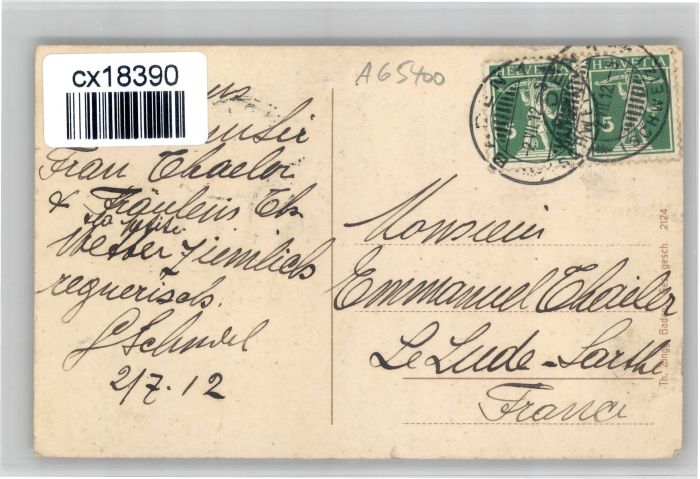 cx18390
A65400
HELVETIA
HELVETIA
5
5
BADEN
SCHWEIZ
Frau Thaeler
& Fräulein Th.
Wetter ziemlich
regnerisch.
2/7.12
Monsieur
Emmanuel Thaeler
Le Lude-Sarthe
France
Th. Zingg, Baden Ges. gesch. 2124